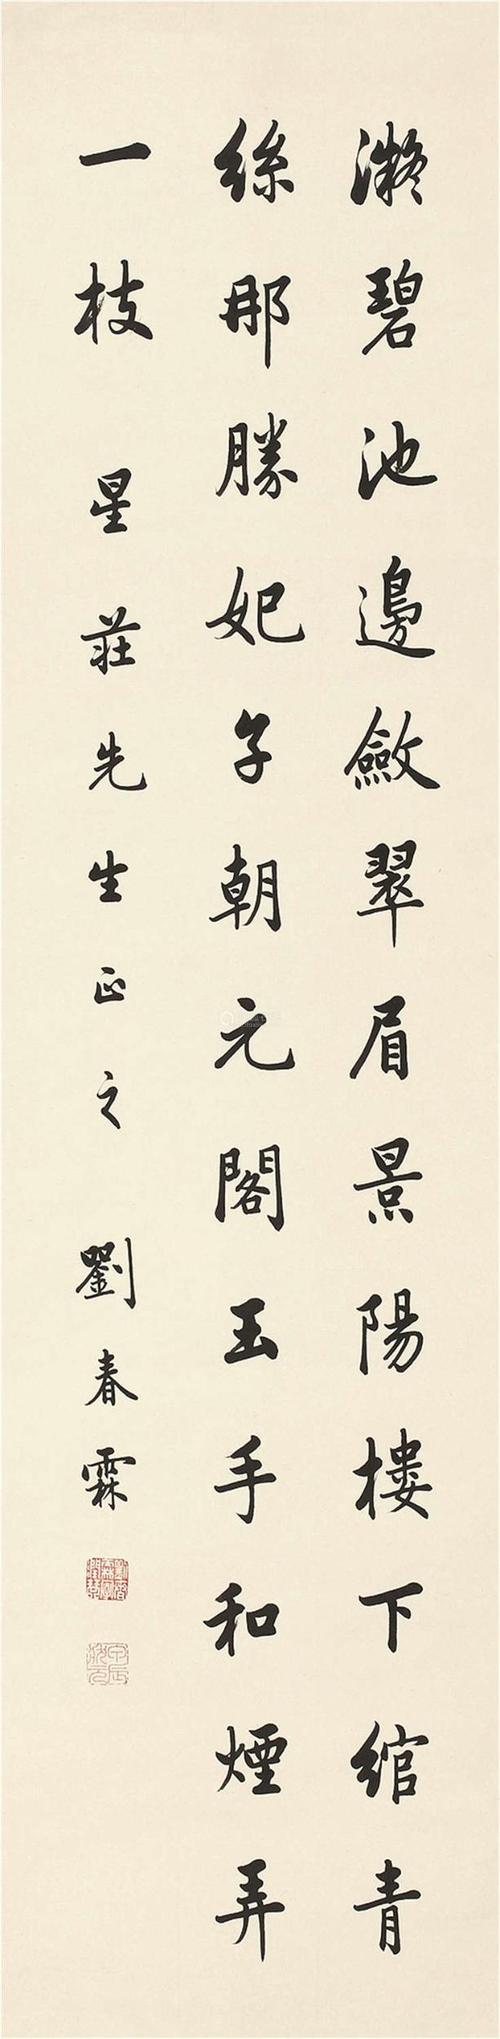 凝碧池邊斂翠眉景陽樓下綰青
絲那勝妃子朝元閣玉手和煙弄
一枝 星莊先生正之 劉春霖